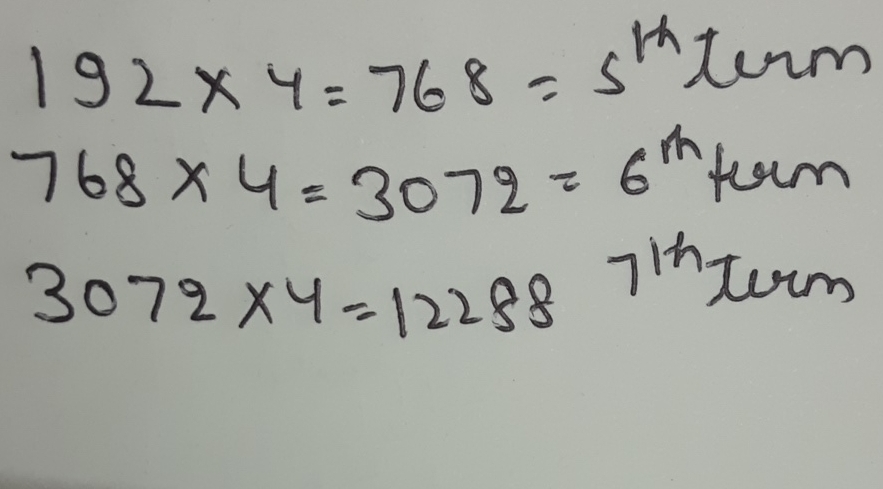 192 × 4 = 768 = 5th term
768 × 4 = 3072 = 6th term
3072 × 4 = 12288 7th term